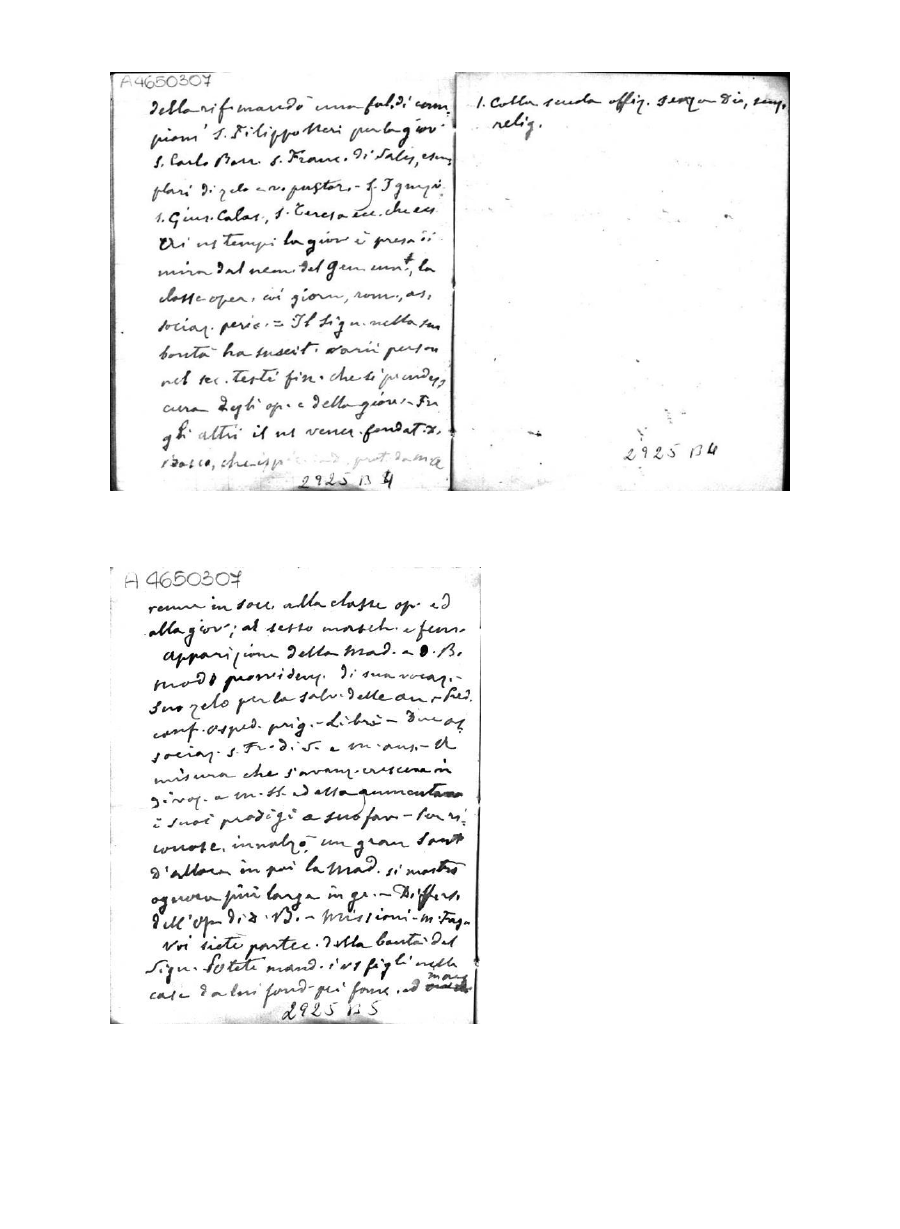 A4650307
della rif. mandò una fal. di cam-
pioni S. Filippo Neri per la giov.
S. Carlo Borr. S. Franc. di Sales, esem
plari di zelo e pastor. - S. Ignazi.
S. Gius. Calas., S. Teresa ecc. che ecc
tempi la giov. è presa di
mira dal nem. del Gen. um.t, la
classe oper. coi giorn., rom., as,
sociaz. peric. = Il Sign. nella sua
bontà ha suscit. varii person
nel sec. testè fin. che si prendess
cura degli op. e della giov. - Fra
gli altri il ns vener. fondat. D.
Bosco, che
2925 B 4
1. Colla scuola offiz. senza Dio, senz.
relig.
2925 B 4
A 4650307
in socc. alla classe op. ed
alla giov.; al sesso masch. e fem.
Apparizione della Mad. a D. B.
modo providenz. di sua vocaz. -
Suo zelo per la salv. delle an. - Pred.
conf. osped. prig. - Libri - Due as
sociaz. S. Fr. di S. e M. aus. - A
misura che s'avanz. cresceva in
divoz. a M. SS. ed essa aumentava
i suoi prodigi a suo fav. - Per ri-
conosc. innalzò un gran Sant
D'allora in poi la Mad. si mostrò
ognora più larga in gr. - Diffus.
dell'Op. di D. B. - Missioni - M. Fag.
Voi siete partec. della bontà del
Sign. Potete mand. i vs figli nelle
case da lui fond. pei fanc. ed
2925 B 5